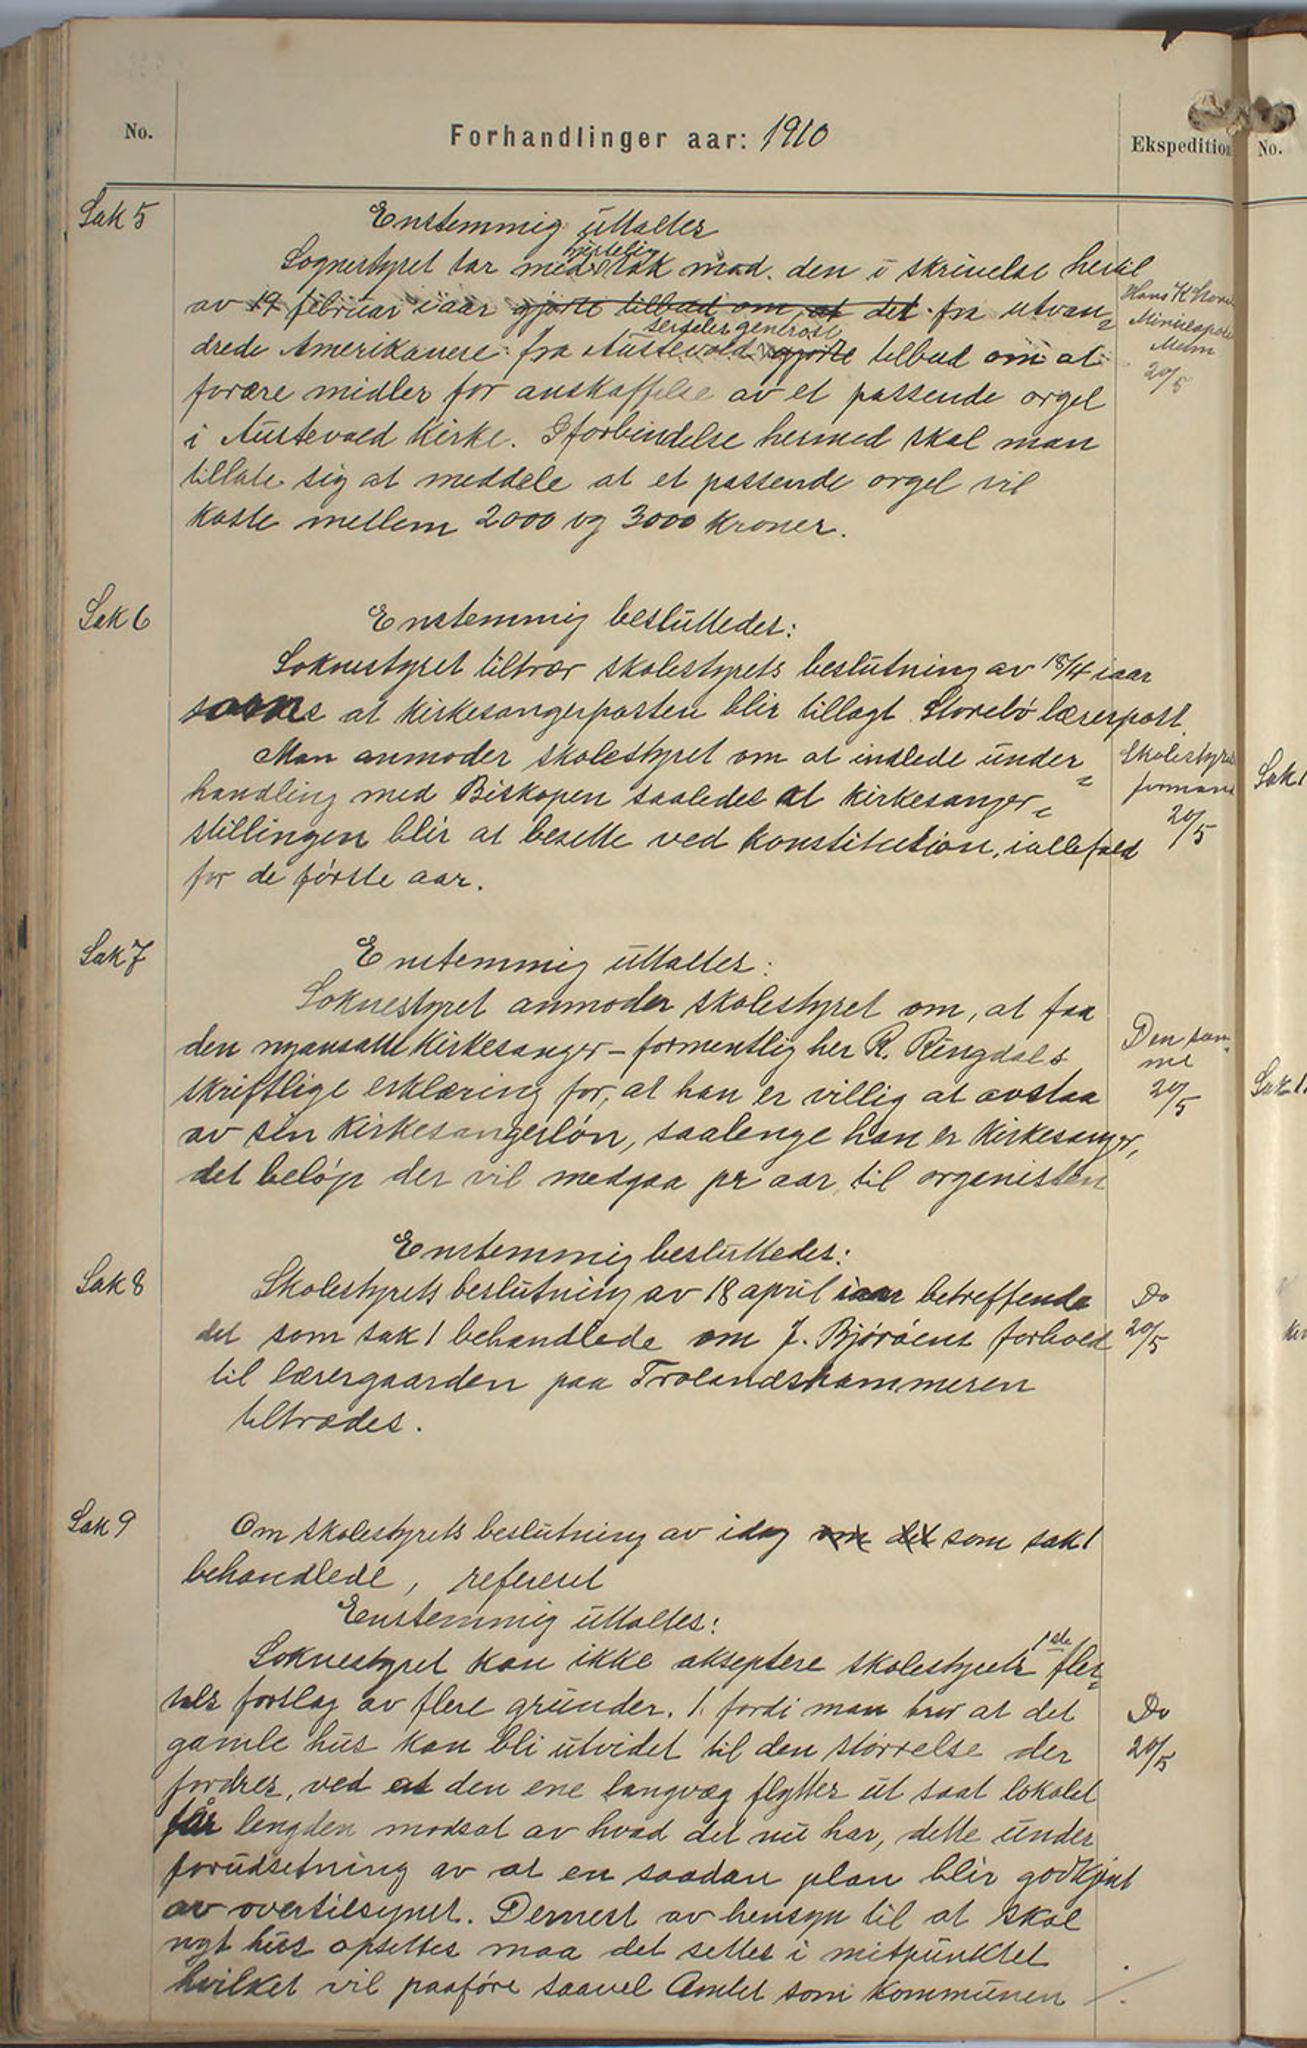 No.
Forhandlinger aar: 1910
Ekspedition
No.
Sak 5
Enstemmig uttaltes
hjertelig
Sognestyret tar med tak mod den i skrivelse hertil
av 19 februar iaar gjorte tilbud om at det fra utvan=
serdeles generøse
drede Amerikanere fra Austevold gjorte tilbud om at
forære midler for anskaffelse av et passende orgel
i Austevold kirke. I forbindelse hermed skal man
tillate sig at meddele at et passende orgel vil
koste mellem 2000 og 3000 kroner.
Hans K
Minneapolis
20/5
Sak 6
Enstemmig besluttedes:
Soknestyret tiltrær skolestyrets beslutning av 18/4 iaar
at kirkesangerposten blir tillagt Storebø lærerpost.
Man anmoder skolestyret om at indlede under=
handling med Biskopen saaledes at kirkesanger=
stillingen blir at besette ved konstitution, iallefald
for de første aar.
Skolestyrets
formand
20/5
Sak 1
Sak 7
Enstemmig uttaltes:
Soknestyret anmoder skolestyret om, at faa
den nyansatte kirkesanger – formentlig her R. Ringdals
skriftlige erklæring for, at han er villig at avstaa
av sin kirkesangerløn, saalenge han er kirkesanger,
det beløp der vil medgaa pr aar til organisten
Den sam=
me
20/5
Sak 1
Enstemmig besluttedes:
Sak 8
Skolestyrets beslutning av 18 april iaar betreffende
det som sak 1 behandlede om J. Bjørøens forhold
til lærergaarden paa Trolandshammeren
tiltrædes.
Do
20/5
Sak 9
Om skolestyrets beslutning av idag om det som sak 1
behandlede, referert
Enstemmig uttaltes:
1ste
Soknestyret kan ikke akseptere skolestyrets fler=
tals forslag av flere grunder. 1. fordi man tror at det
gamle hus kan bli utvidet til den størrelse der
fordres, ved at den ene langvæg flyttes ut saat lokalet
får lengden modsat av hvad det nu har, dette under
forudsetning av at en saadan plan blir godkjent
av overtilsynet. Dernest av hensyn til at skal
nyt hus opsettes maa det settes i mitpunktet
hvilket vil paaføre saavel Amtet som kommunen
Do
20/5